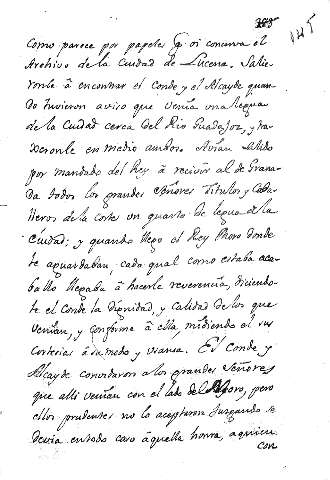 145
como parece por papeles q̃ oi conserva el
Archivo de la Ciudad de Lucena. Salie
ronle â encontrar el Conde, y el Alcayde quan
do tuvieron aviso que venîa una legua
de la Ciudad cerca del Rio Guadajoz, y tra
xeronle en medio ambos. Avîan salido
por mandado del Rey â recivir al de Grana
da todos los grandes Señores Titulos, y Caba
lleros de la Corte un quarto de legua de la
Ciudad; y quando llego el Rey Moro donde
le aguardaban, cada qual como estaba a ca
ballo llegaba â hacerle reverencia, diciendo
le el Conde la dignidad, y calidad de los que
venîan, y conforme â ella, midiendo el sus
cortesias â su modo y usanza. El Conde y
Alcayde convidaron a los grandes Señores
que alli venîan con el lado del Moro, pero
ellos prudentes no lo aceptaron juzgando se
devia en todo caso âquella honra, a quien
con